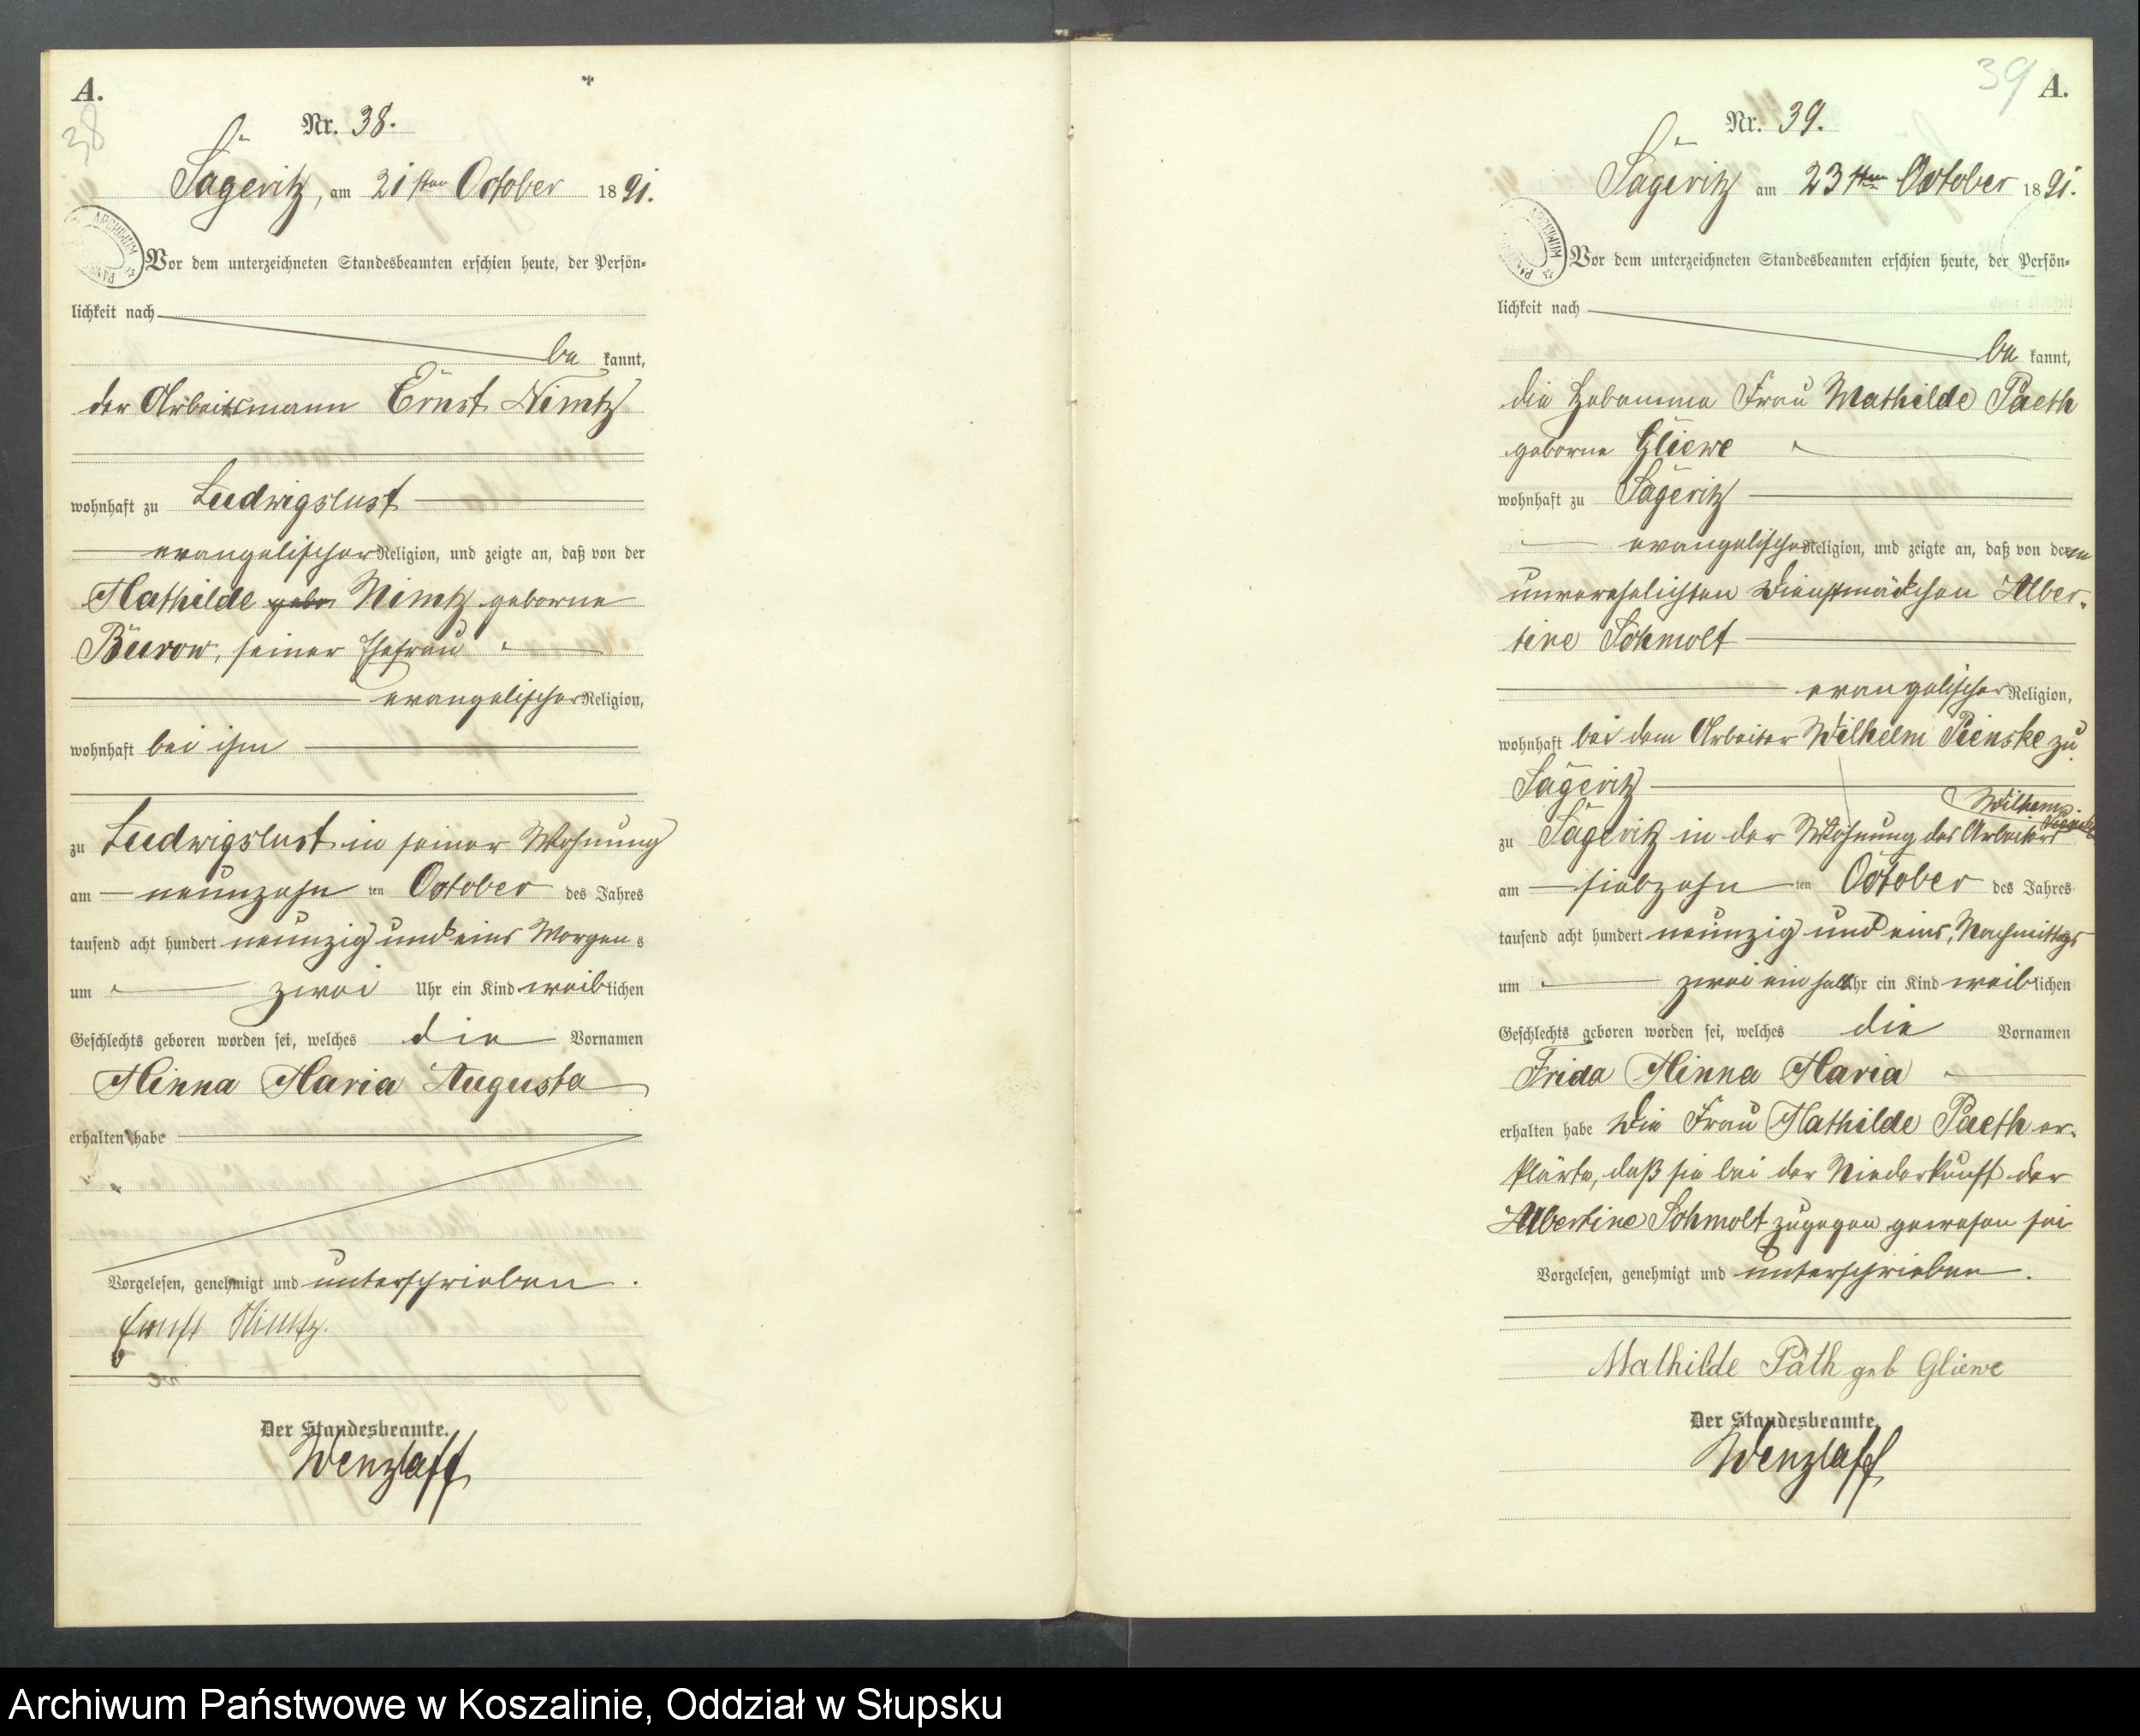 A.
38
Nr. 38.
Sageritz, am 21sten October 1891.
Vor dem unterzeichneten Standesbeamten erschien heute, der Persön-
lichkeit nach
be kannt,
der Arbeitsmann Ernst Nimtz
wohnhaft zu Ludwigslust
evangelischer Religion, und zeigte an, daß von der
Mathilde geb. Nimtz geborne
Burow, seiner Ehefrau
evangelischer Religion,
wohnhaft bei ihm
zu Ludwigslust in seiner Wohnung
am neunzehn ten October des Jahres
tausend acht hundert neunzig und eins Morgens
um zwei Uhr ein Kind weiblichen
Geschlechts geboren worden sei, welches die Vornamen
Minna Maria Augusta
erhalten habe
Vorgelesen, genehmigt und unterschrieben.
Ernst Nimtz.
Der Standesbeamte.
Wenzlaff
ARCHIWUM
39 A.
Nr. 39.
Sageritz am 23sten October 1891.
Vor dem unterzeichneten Standesbeamten erschien heute, der Persön-
lichkeit nach
be kannt,
die Hebamme Frau Mathilde Paeth
geborne Gliewe
wohnhaft zu Sageritz
evangelischer Religion, und zeigte an, daß von der
unverehelichten Dienstmädchen Alber-
tine Schmolt
evangelischer Religion,
wohnhaft bei dem Arbeiter Wilhelm Pienske zu
Sageritz
Wilhelm
Pienske
zu Sageritz in der Wohnung des Arbeiters
am siebzehn ten October des Jahres
tausend acht hundert neunzig und eins, Nachmittags
um zwei ein halb Uhr ein Kind weiblichen
Geschlechts geboren worden sei, welches die Vornamen
Frida Minna Maria
erhalten habe Die Frau Mathilde Paeth er-
klärte, daß sie bei der Niederkunft der
Albertine Schmolt zugegen gewesen sei
Vorgelesen, genehmigt und unterschrieben.
Mathilde Päth geb Gliewe
Der Standesbeamte.
Wenzlaff
ARCHIWUM
Archiwum Państwowe w Koszalinie, Oddział w Słupsku